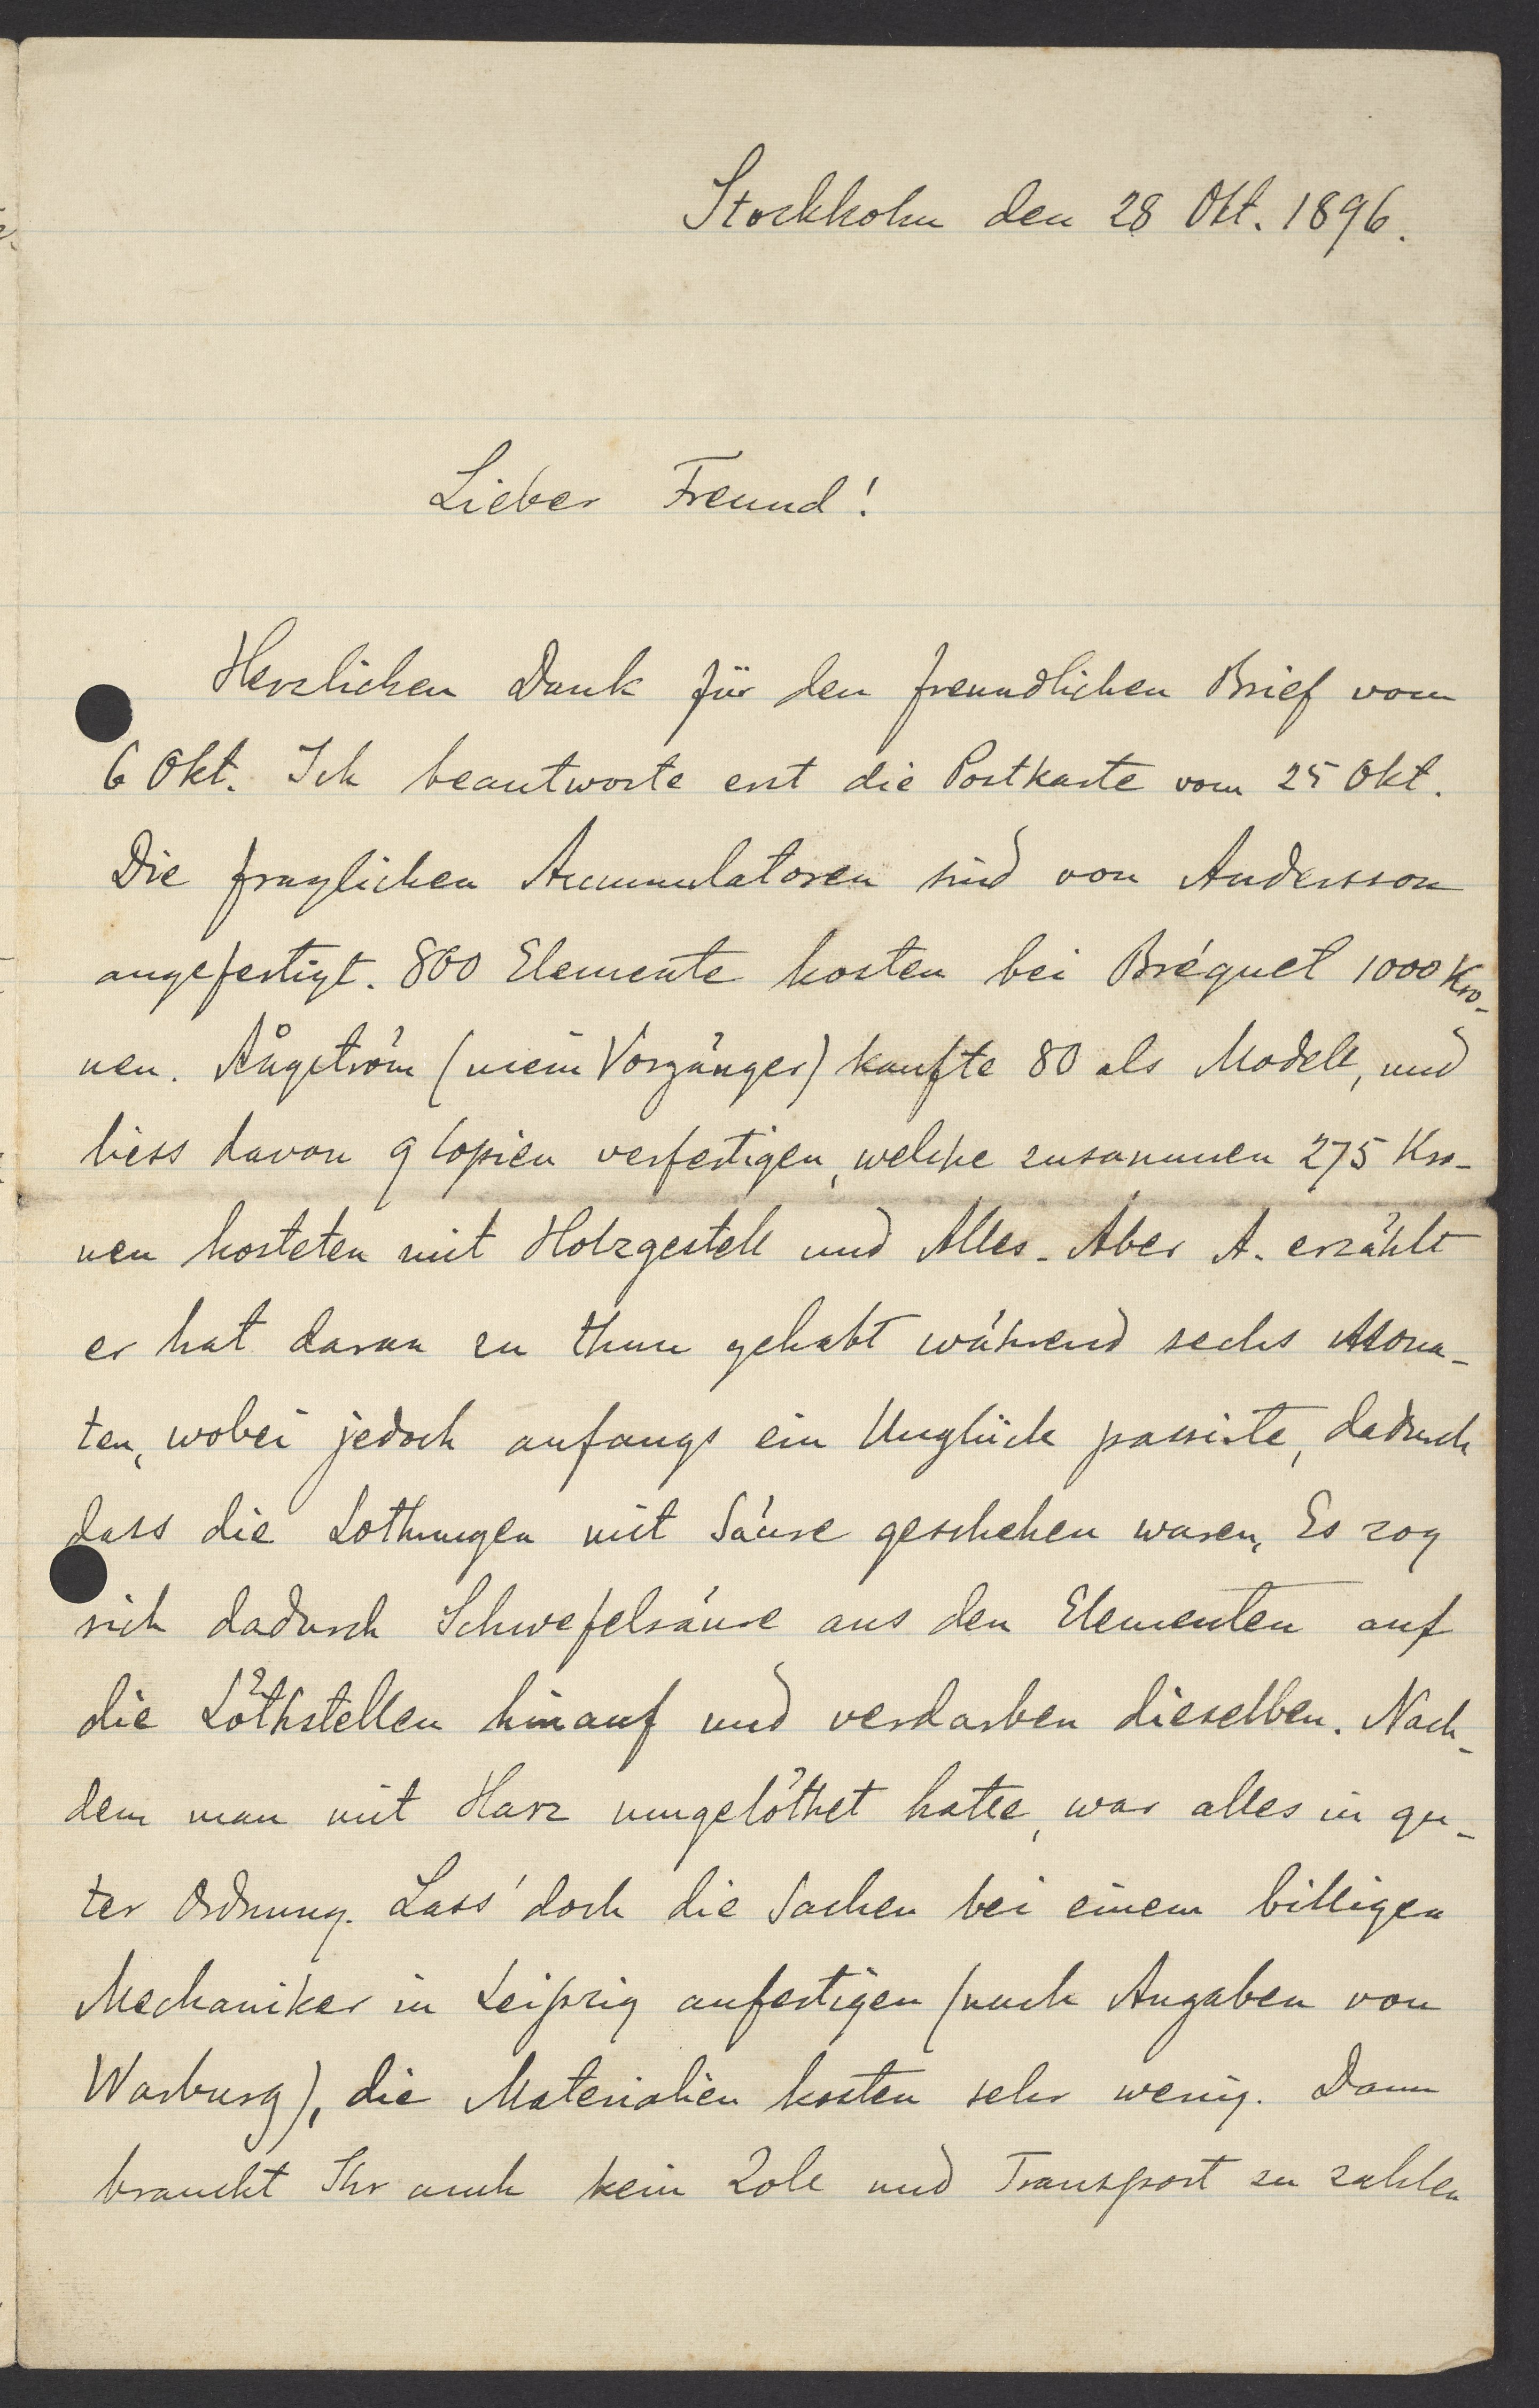 Stockholm den 28 Okt. 1896.
Lieber Freund!
Herzlichen Dank für den freundlichen Brief vom
6 Okt. Ich beantworte erst die Postkarte vom 25 Okt.
Die fraglichen Accumulatoren sind von Andersson
angefertigt. 800 Elemente kosten bei Bréguet 1000 Kro-
nen. Ångström (mein Vorgänger) kaufte 80 als Modell, und
liess davon 9 Copien verfertigen, welche zusammen 275 Kro-
nen kosteten mit Holzgestell und Alles. Aber A. erzählt
er hat daran zu thun gehabt während sechs Mona-
ten, wobei jedoch anfangs ein Unglück passirte, dadurch
dass die Lothungen mit Säure geschehen waren, Es zog
sich dadurch Schwefelsäure aus den Elementen auf
die Löthstellen hinauf und verdarben dieselben. Nach-
dem man mit Harz umgelöthet hatte, war alles in gu-
ter Ordnung. Lass' doch die Sachen bei einem billigen
Mechaniker in Leipzig anfertigen (nach Angaben von
Warburg), die Materialien kosten sehr wenig. Dann
braucht Ihr auch kein Zoll und Transport zu zahlen